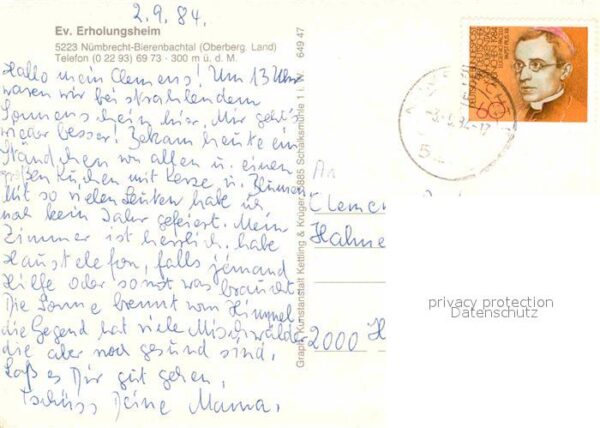 2.9.84.
Ev. Erholungsheim
5223 Nümbrecht-Bierenbachtal (Oberberg. Land)
Telefon (0 22 93) 69 73 · 300 m ü. d. M.
Hallo mein Clemens! Um 13 Uhr
waren wir bei strahlendem
Sonnenschein hier. Mir geht's
wieder besser! Bekam heute ein
Ständchen von allen u. einen
großen Kuchen mit Kerze u. Blumen
Mit so vielen Leuten habe ich
noch kein Jahr gefeiert. Mein
Zimmer ist herrlich, habe
Haustelefon, falls jemand
Hilfe oder sonst was braucht.
Die Sonne brennt vom Himmel
die Gegend hat viele Mischwälder
die aber noch gesund sind.
Laß es Dir gut gehen,
Tschüss Deine Mama.
Graph. Kunstanstalt Kettling & Krüger, 5885 Schalksmühle 1 i. W. 649 47
60
An
Clemen
Hahne
2000 H
privacy protection
Datenschutz